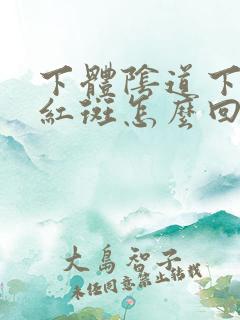 下體陰道下
紅斑怎麼回
大島智子
未任同意禁止轉載